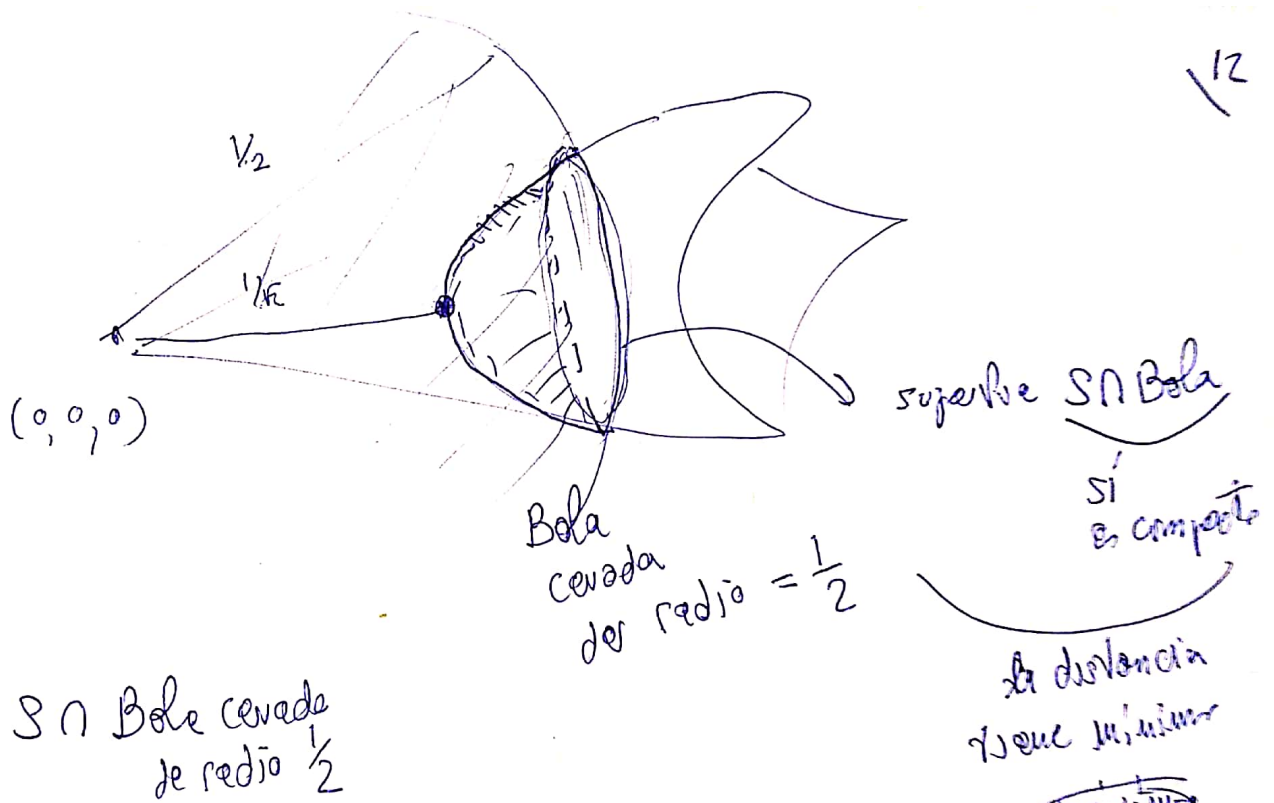 12
1/2
(0,0,0)
S∩Bola
sí
es compacto
Bola
cerrada
radio = 1/2
la distancia
tiene mínimo
S∩ Bola cerrada
de radio 1/2